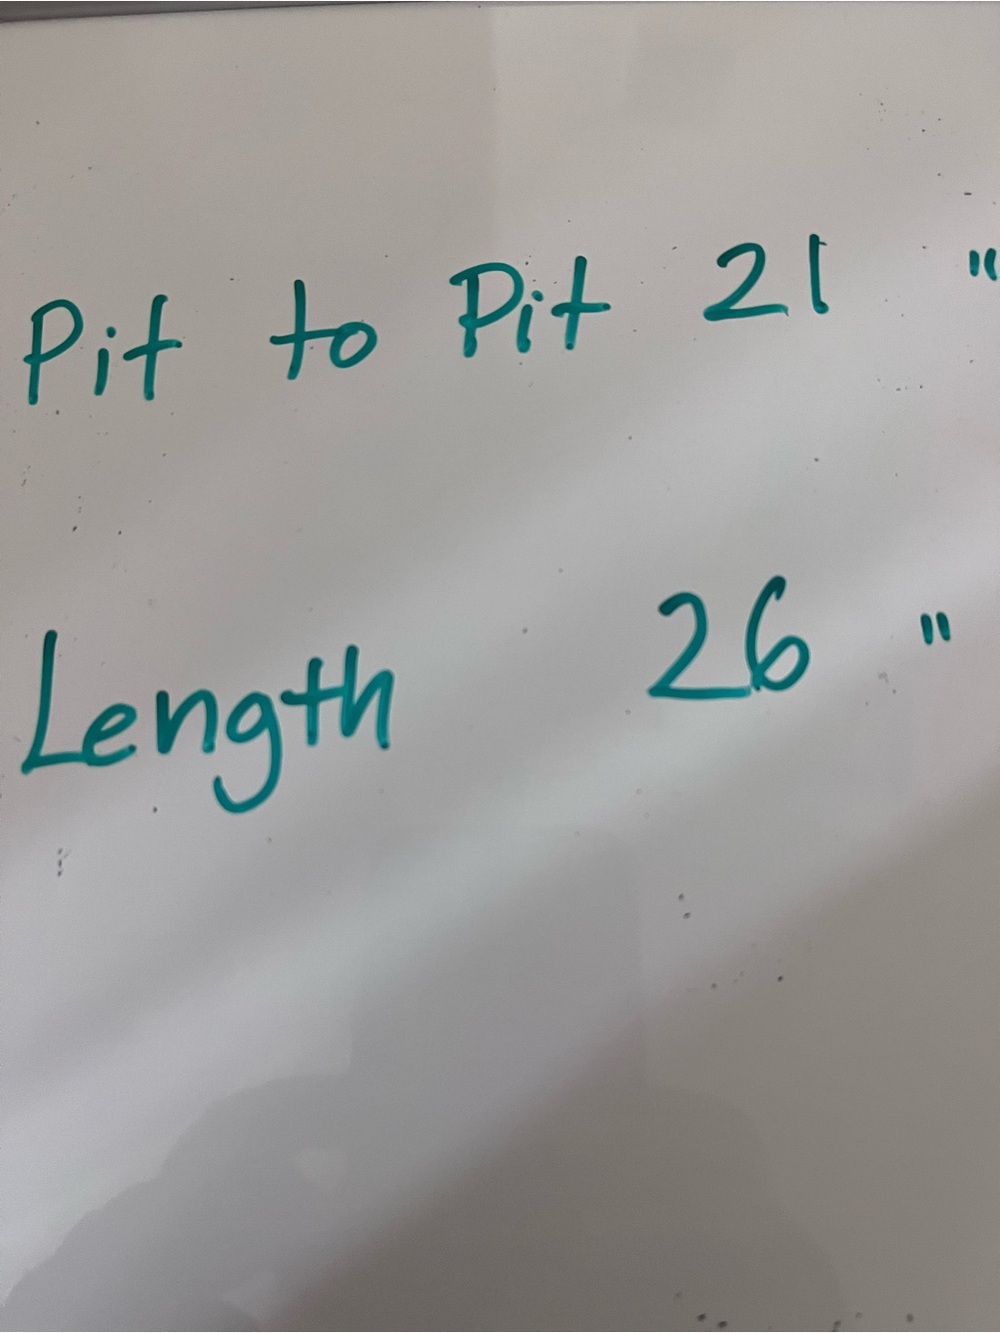 Pit to Pit 21 "
Length 26 "